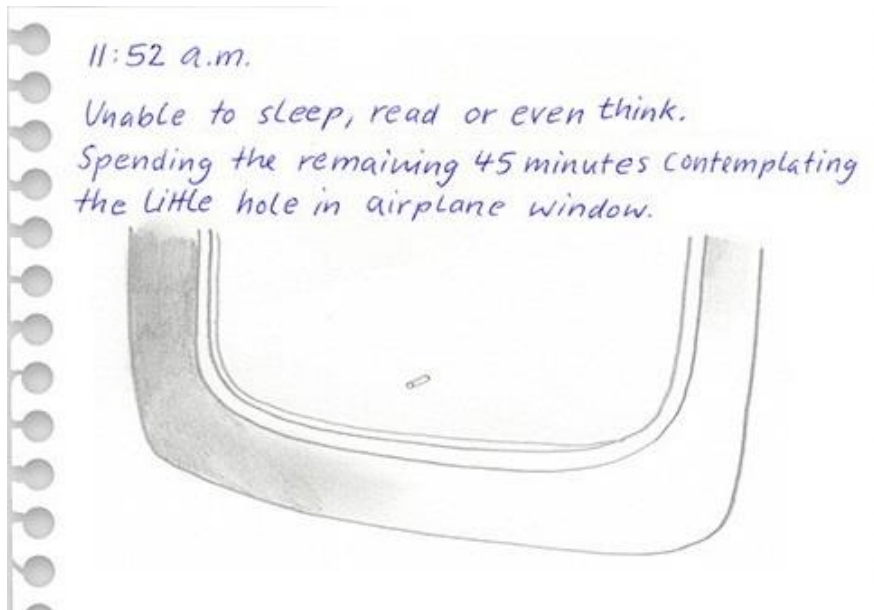 11:52 a.m.
Unable to sleep, read or even think.
Spending the remaining 45 minutes contemplating
the little hole in airplane window.